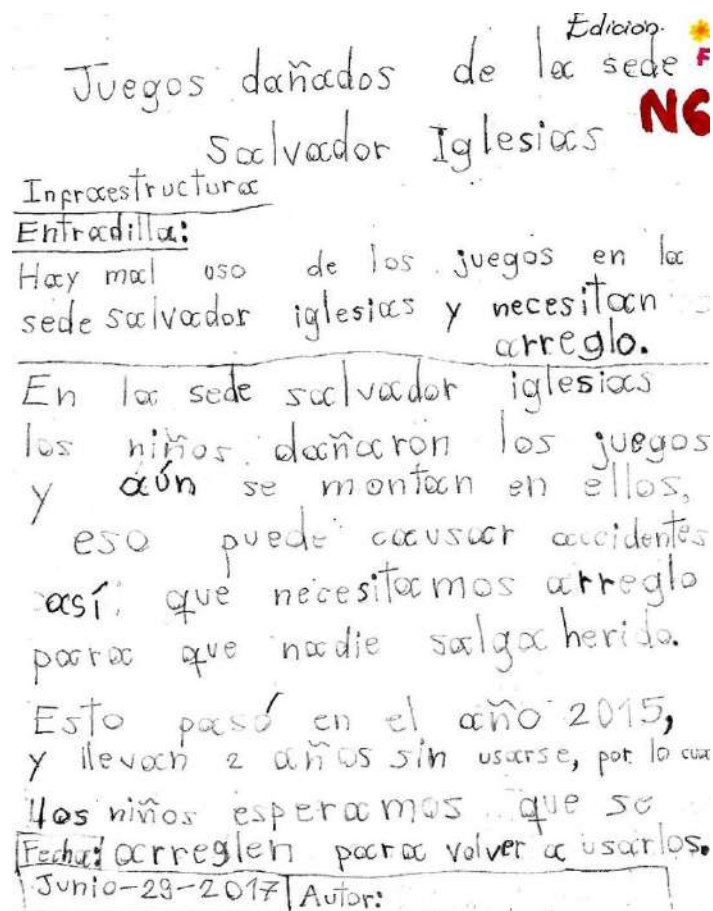 Edicion.
Juegos dañados de la sede F
N6
Salvador Iglesias
Inpraestructura
Entradilla:
Hay mal uso de los juegos en la
sede salvador iglesias y necesitan
arreglo.
En la sede salvador iglesias
los niños dañaron los juegos
y aún se montan en ellos,
eso puede causar accidentes
así que necesitamos arreglo
para que nadie salga herido.
Esto pasó en el año 2015,
y llevan 2 años sin usarse, por lo cua
los niños esperamos que se
Fecha: arreglen para volver a usarlos.
Junio-29-2017 Autor: